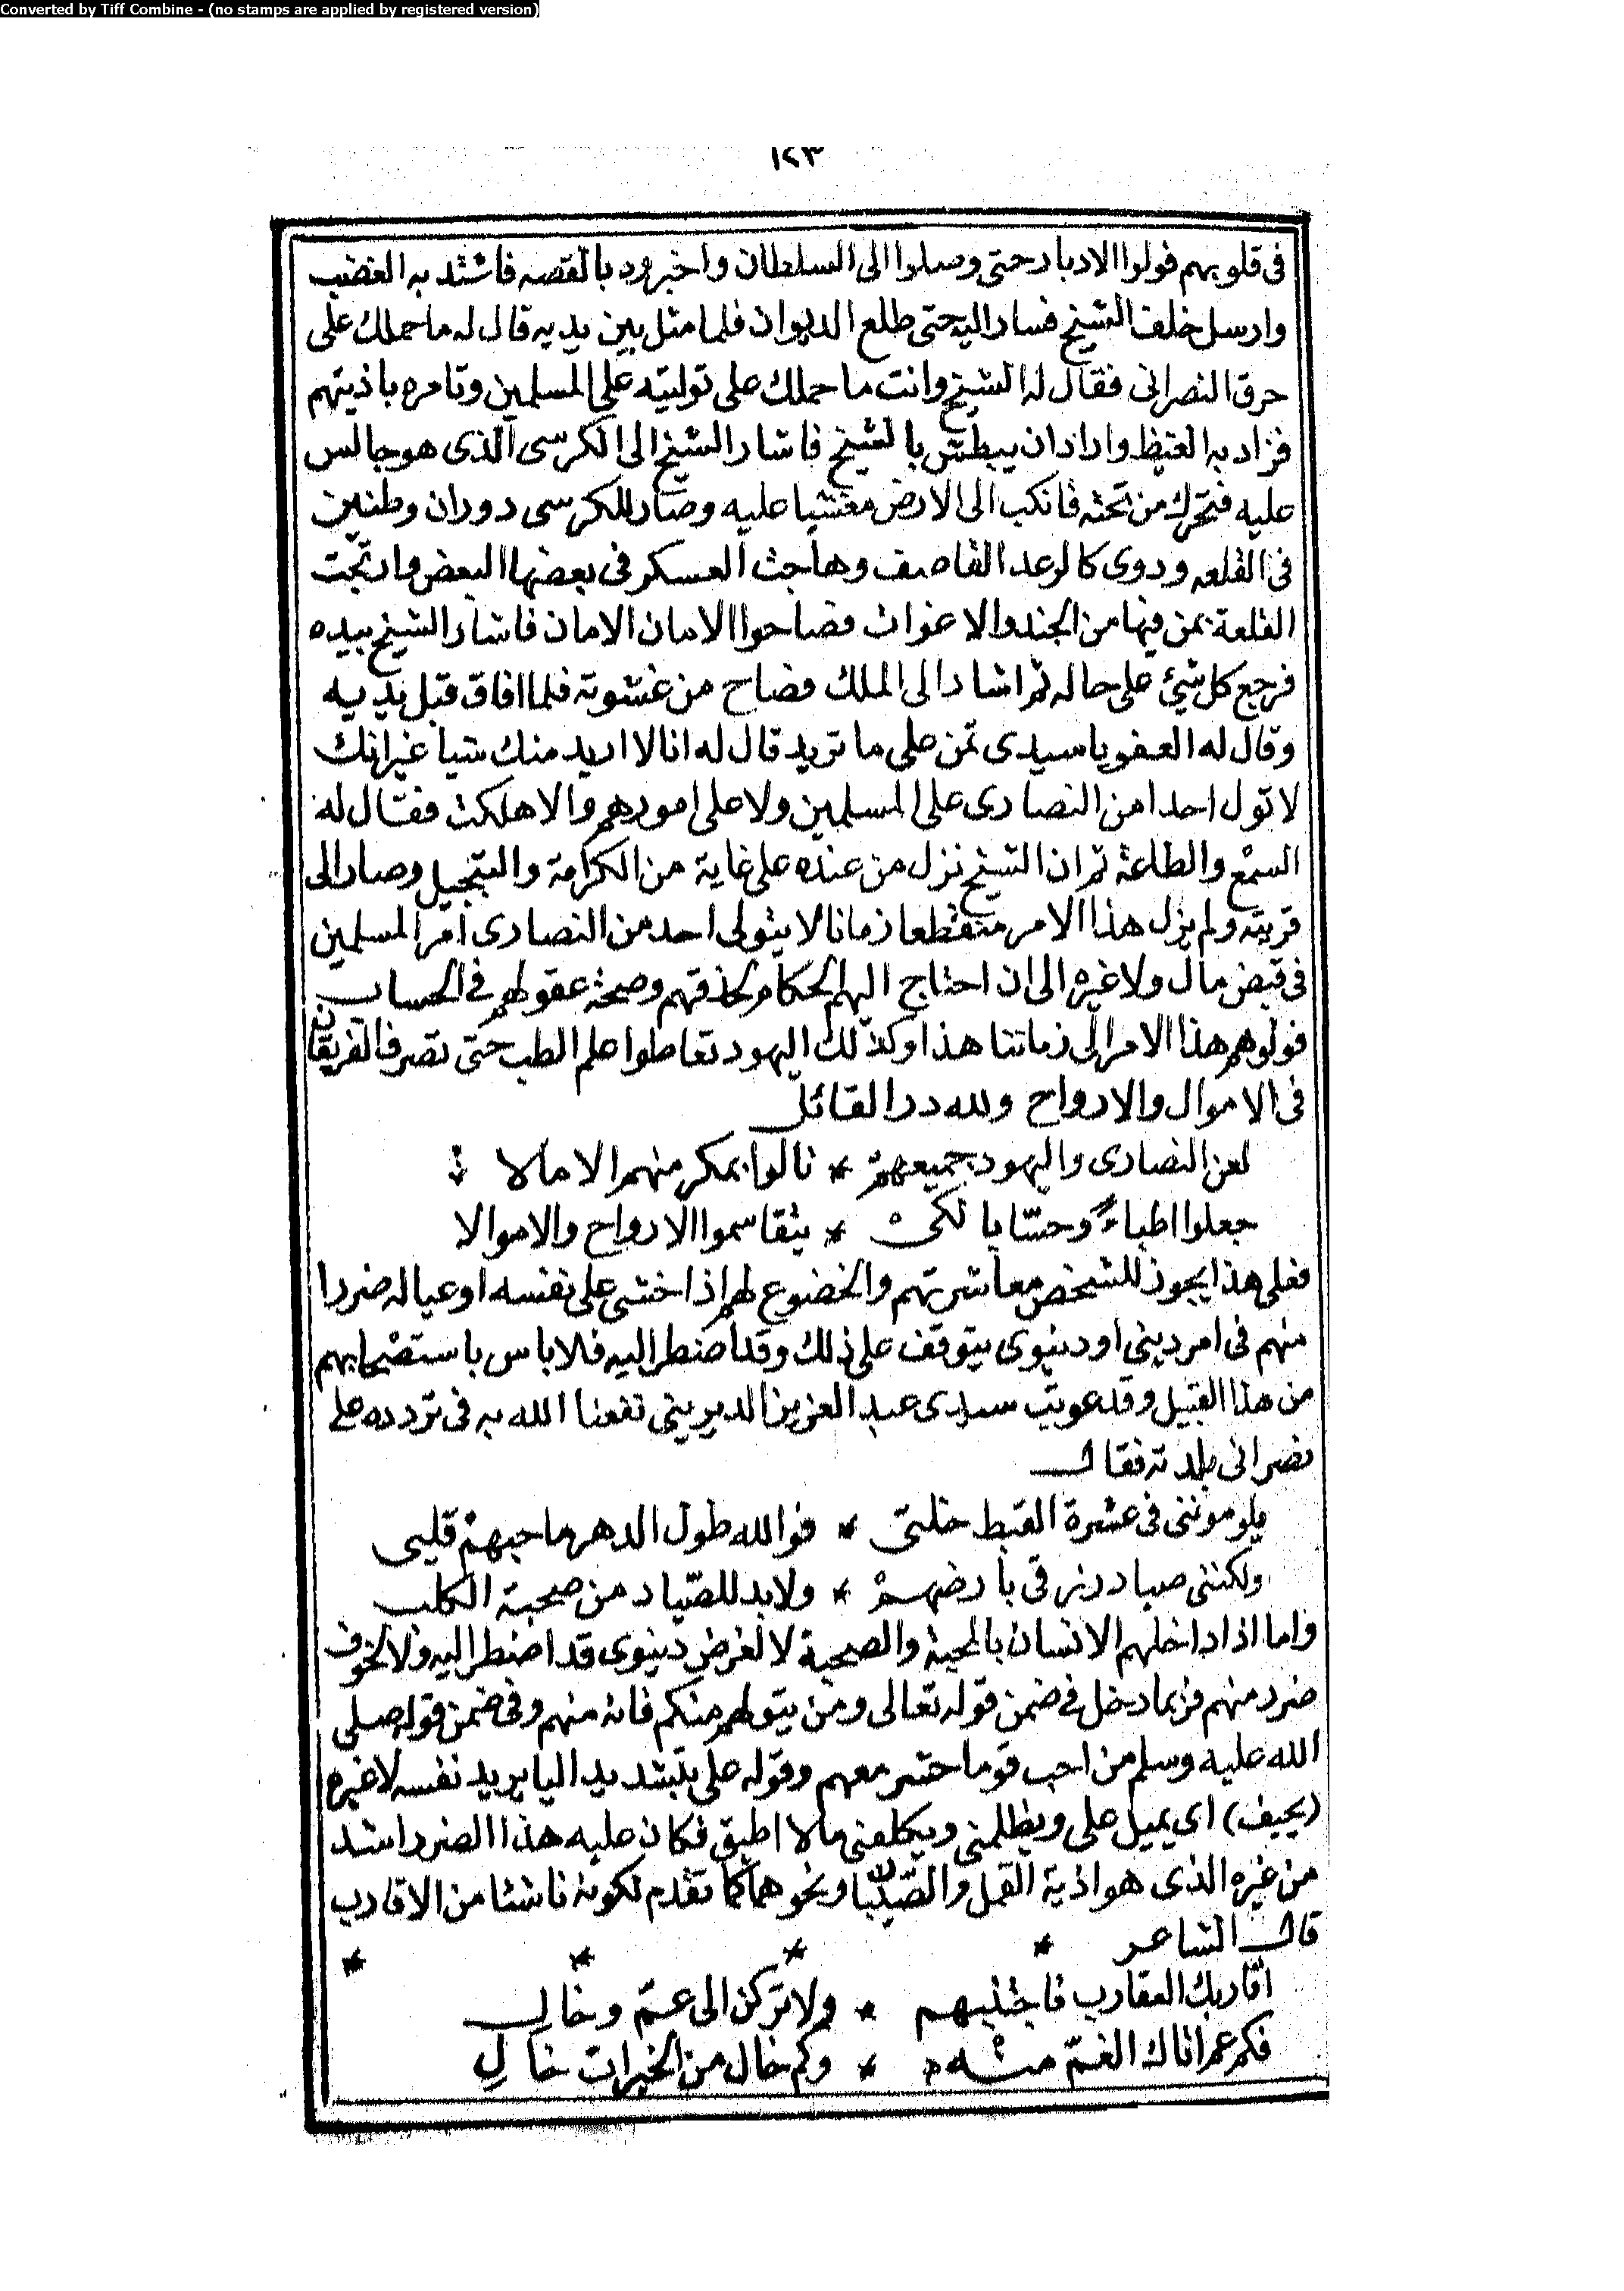 Converted by Tiff Combine - (no stamps are applied by registered version)
١٢٣
فى قلوبهم فولوا الادبار حتى وصلوا الى السلطان واخبروه بالقصه فاشتد به الغضب
وارسل خلف الشيخ فسار اليه حتى طلع الديوان فلما مثل بين يديه قال له ما حملك على
حرق النصرانى فقال له الشيخ وانت ما حملك على توليته على المسلمين وتامره باذيتهم
فزاد به الغيظ واراد ان يبطش بالشيخ فاشار الشيخ الى الكرسى الذى هو جالس
عليه فتحرك من تحته فانكب الى الارض مغشيا عليه وصار للكرسى دوران وطنين
فى القلعه ودوى كالرعد القاصف وهاجت العسكر فى بعضها البعض وارتجت
القلعة بمن فيها من الجند والاعوان فصاحوا الامان الامان فاشار الشيخ بيده
فرجع كل شئ على حاله ثم اشار الى الملك فصاح من غشوته فلما افاق قبل يديه
وقال له العفو يا سيدى تمن على ما تريد قال له انا لا اريد منك شيا غير انك
لا تول احدا من النصارى على المسلمين ولا على امورهم والا هلكت فقال له
السمع والطاعة ثم ان الشيخ نزل من عنده على غاية من الكرامة والتبجيل وصار الى
قريته ولم يزل هذا الامر منقطعا زمانا لا يتولى احد من النصارى امر المسلمين
فى قبض مال ولا غيره الى ان احتاج اليهم الحكام لحذقهم وصحة عقولهم فى الحساب
فولوهم هذا الامر الى زماننا هذا وكذلك اليهود تعاطوا علم الطب حتى تصرف الفريقان
فى الاموال والارواح ولله در القائل
لعن النصارى واليهود جميعهم * نالوا بمكر منهم الامالا
جعلوا اطباء وحسّابا لكى * يتقاسموا الارواح والاموالا
فعلى هذا يجوز للشخص معاشرتهم والخضوع لهم اذا خشى على نفسه او عياله ضررا
منهم فى امر دينى او دنيوى يتوقف على ذلك وقد اضطر اليه فلا باس باستصحابهم
من هذا القبيل وقد عوتب سيدى عبد العزيز الديرينى نفعنا الله به فى تردده على
نصرانى ببلدته فقال
يلوموننى فى عشرة القبط خلتى * فوالله طول الدهر ما حبهم قلبى
ولكننى صياد رزقى بارضهم * ولا بد للصّياد من صحبة الكلب
واما اذا داخلهم الانسان بالمحبة والصحبة لا لغرض دنيوى قد اضطر اليه ولا لخوف
ضرر منهم فربما دخل فى ضمن قوله تعالى ومن يتولهم منكم فانه منهم وفى ضمن قوله صلى
الله عليه وسلم من احب قوما حشر معهم وقوله على بتشديد اليا يريد نفسه لا غيره
(يحيف) اى يميل على ويظلمنى ويكلفنى مالا اطيق فكان عليه هذا الضرر اشد
من غيره الذى هو اذية القمل والصّئبان ونحوهما كما تقدم لكونه ناشئا من الاقارب
قال الشاعر * * * *
اقاربك العقارب فاجتنبهم * ولا تركن الى عمّ وخال
فكم عم اتاك الغمّ منه * وكم خال من الخيرات خال